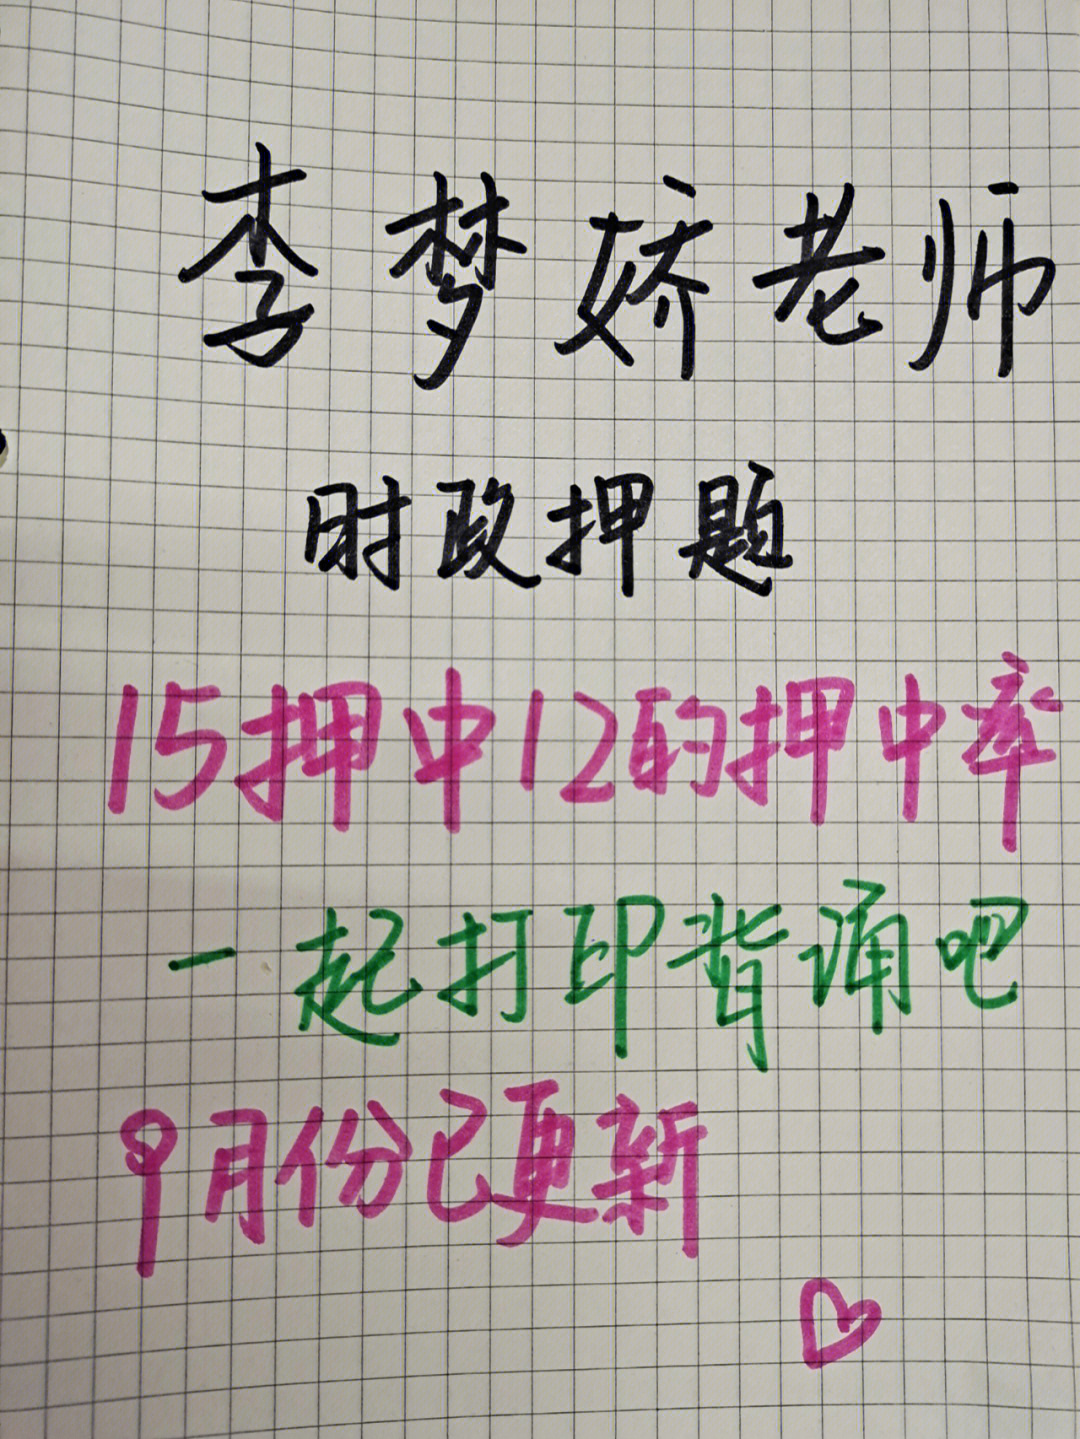 李梦娇老师
时政押题
15押中12的押中率
一起打印背诵吧
9月份已更新